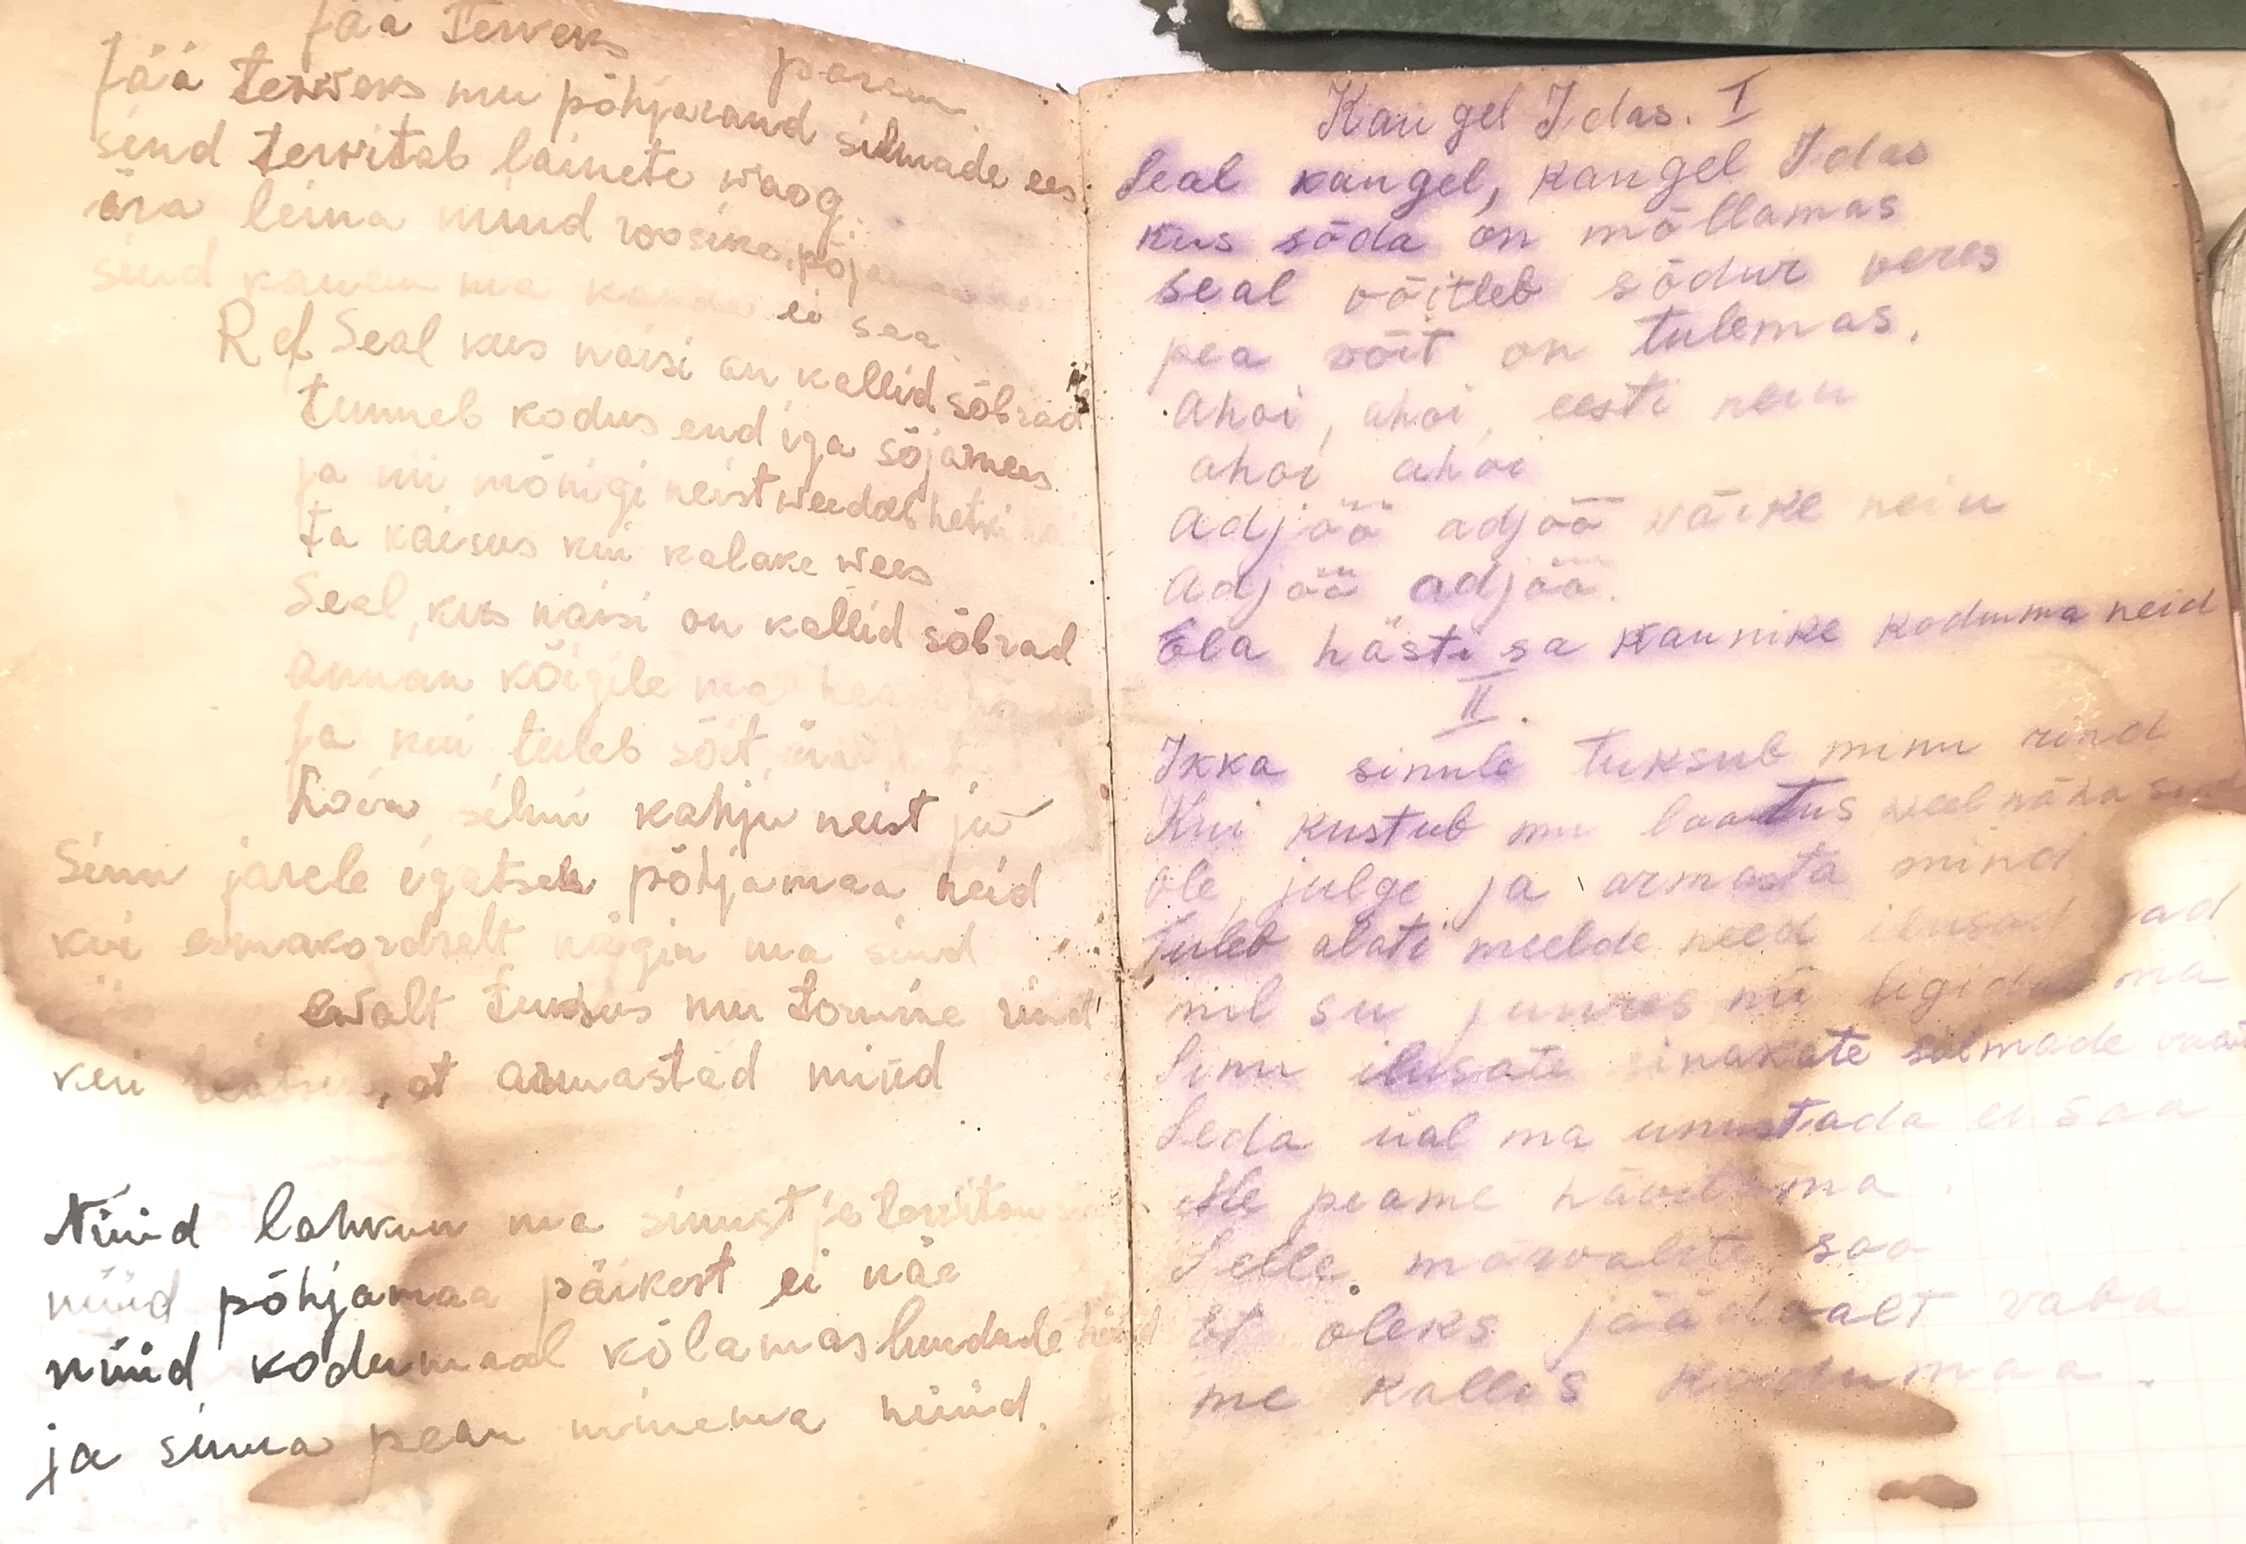 Jää terveks
Jää terweks mu põhjarand silmade ees.
sind terwitab lainete waog.
ära leina nuud roosike,
sind ma ei saa.
Ref Seal kus naisi on kallid sõbrad
tunneb kodus end iga sõjamees
ja nii mõnigi neist weedab hetki
ta kaisus kui kalake wees
Seal, kus naisi on kallid sõbrad
annan kõigile ma
Ja kui tuleb sõit,
silmi kahju neist ju
Sinu jarele igatseb põhjamaa neid
kui esmakordselt nägin ma sind
ewalt tuksus mu tormine rind
kui et armastad mind
Nüüd lahkun ma sinust ja terwitan
nüüd põhjamaa päikest ei näe
nüüd kodumaal kõlamas lindude
ja sinna pean minema nüüd.
Kaugel Idas. I
Seal kaugel, kaugel Idas
kus sõda on möllamas
seal võitleb sõdur veres
pea võit on tulemas.
Ahoi, ahoi, eesti neiu
ahoi ahoi
Adjöö adjöö väike neiu
Adjöö adjöö.
Ela hästi sa kaunike koduma neid
II.
Ikka sinule tuksub minu rind
Kui kustub mu lootus weel näha
ole julge ja armasta mind
Tuleb alati meelde need ilusad
mil su juures nii ligidal ma
Sinu ilusate sinakate silmade
Seda iial ma unustada ei saa
Me peame hävitama
Selle
et oleks jäädavalt vaba
me kallis kodumaa.